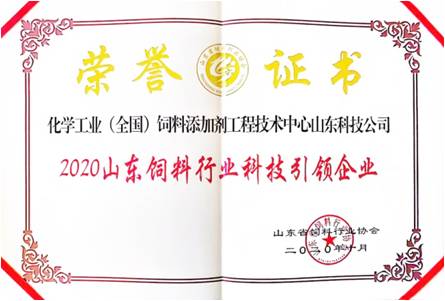 荣誉证书
化学工业（全国）饲料添加剂工程技术中心山东科技公司
2020山东饲料行业科技引领企业
山东省饲料行业协会
二〇二〇年十月